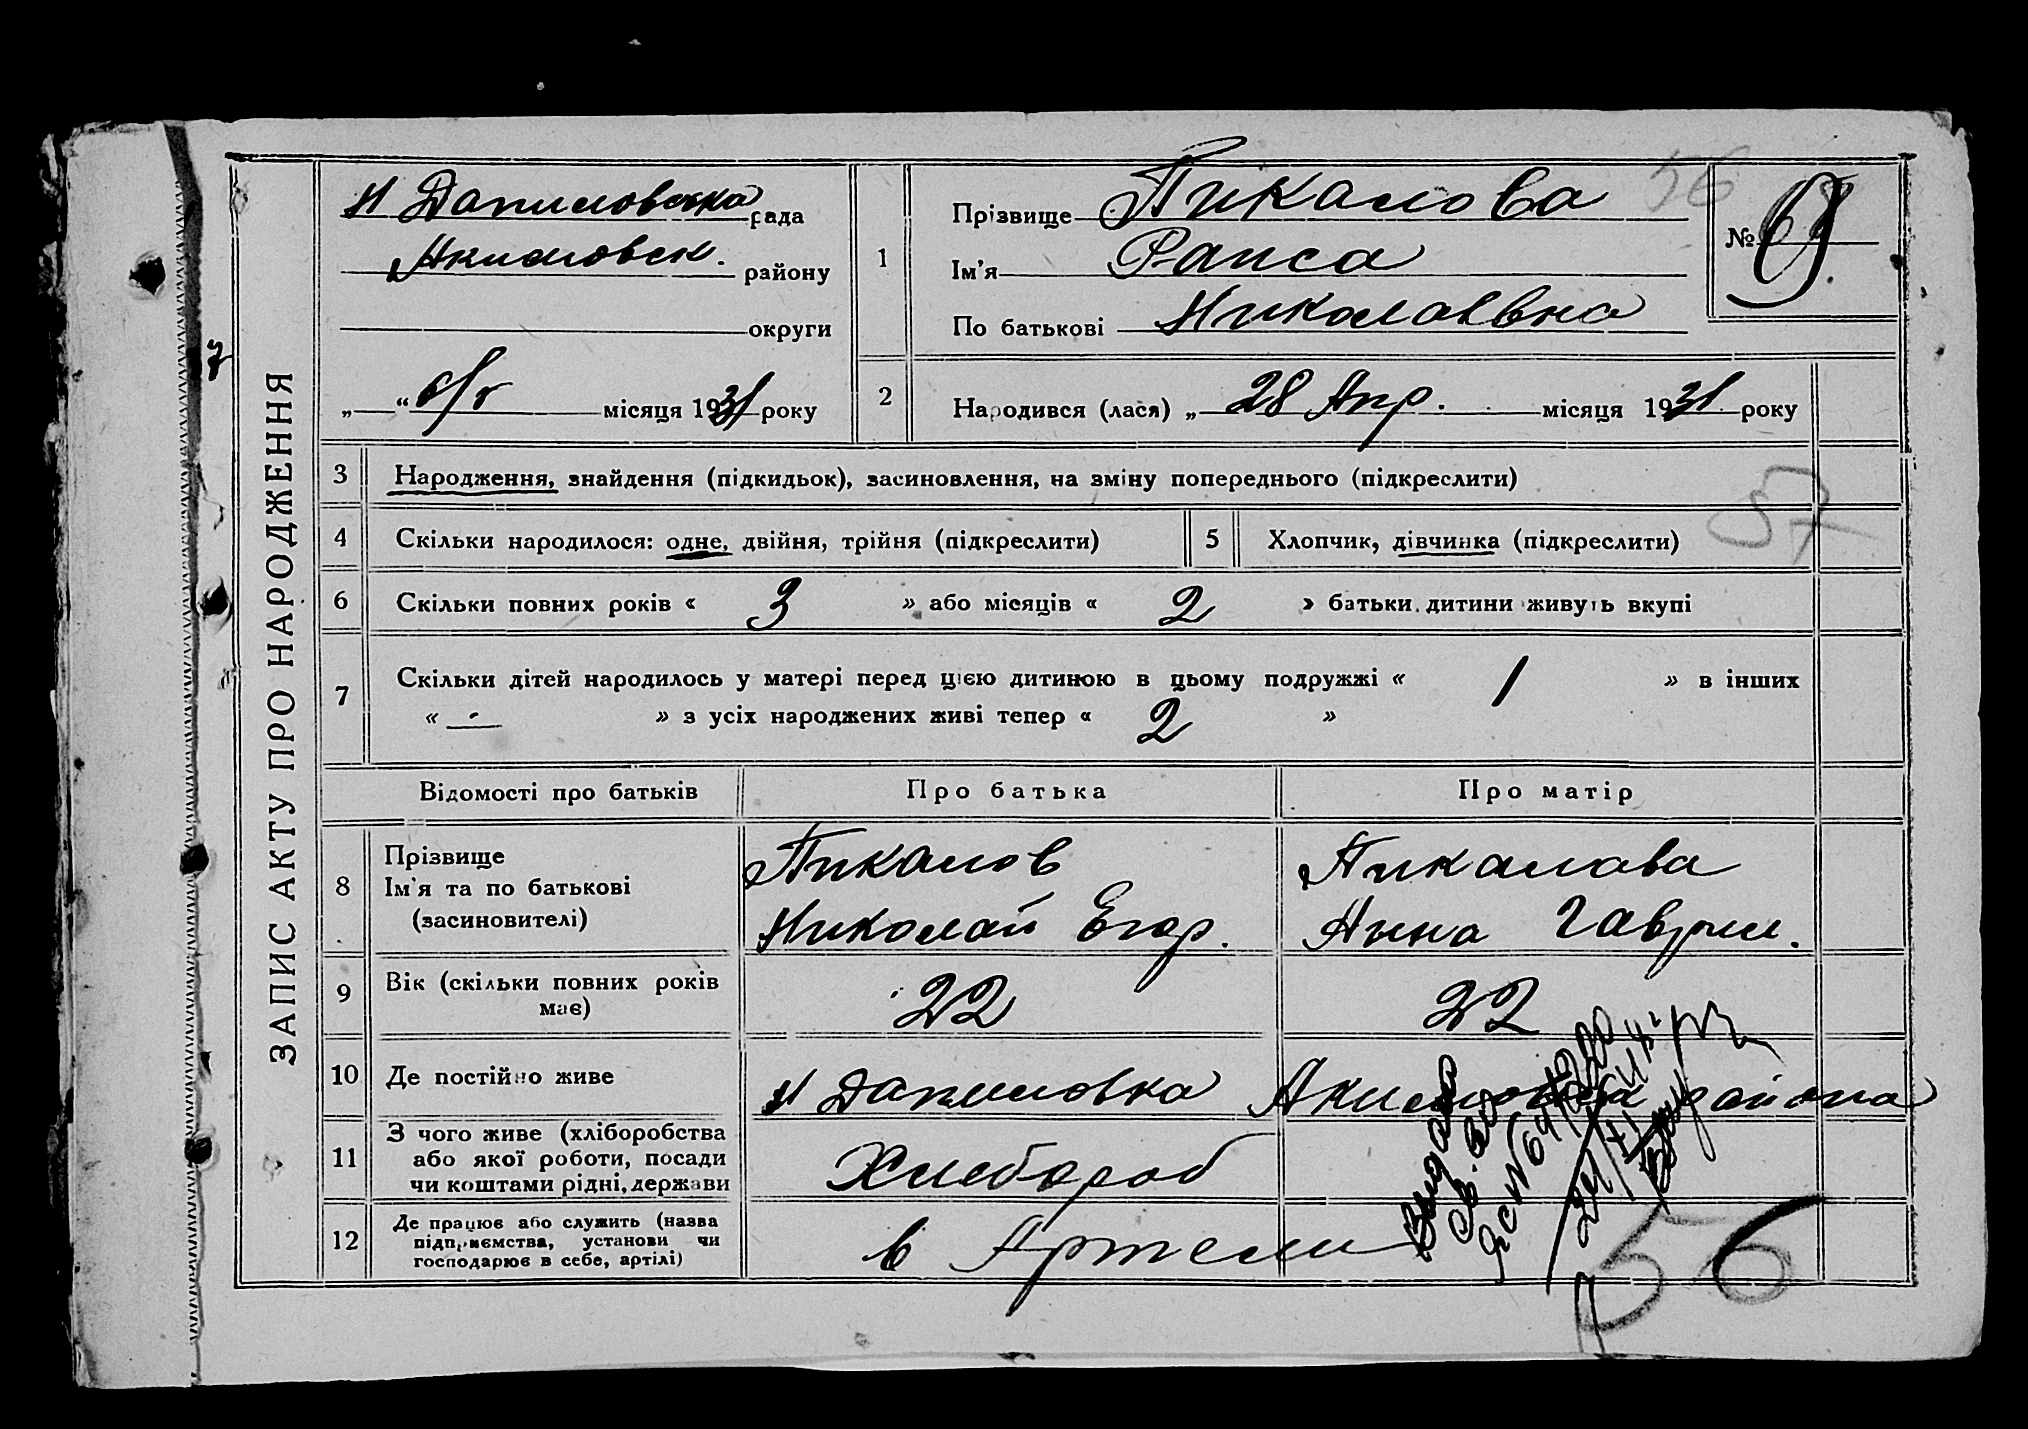 ЗАПИС АКТУ ПРО НАРОДЖЕННЯ
Н Даниловська рада
Акимовск. району
округи
„ “ 6/V місяця 1931 року
1
Прізвище Пикалова
Ім'я Раиса
По батькові Николаевна
56
№ 69.
7
2 Народився (лася) „ 28 Апр. місяця 1931 року
3 Народження, знайдення (підкидьок), засиновлення, на зміну попереднього (підкреслити)
57
4 Скільки народилося: одне, двійня, трійня (підкреслити) 5 Хлопчик, дівчинка (підкреслити)
6 Скільки повних років « 3 » або місяців « 2 » батьки дитини живуть вкупі
7 Скільки дітей народилось у матері перед цією дитиною в цьому подружжі « 1 » в інших
« — » з усіх народжених живі тепер « 2 »
Відомості про батьків Про батька Про матір
8 Прізвище
Ім'я та по батькові
(засиновителі)
Пикалов
Николай Егор.
Пикалова
Нына Гаврил.
9 Вік (скільки повних років має) 22 22
10 Де постійно живе Н Даниловка Акимовск района
11 З чого живе (хліборобства
або якої роботи, посади
чи коштами рідні, держави
Хлебороб
12 Де працює або служить (назва
підприємства, установи чи
господарює в себе, артілі)
в Артели
Выдано
св. во
56